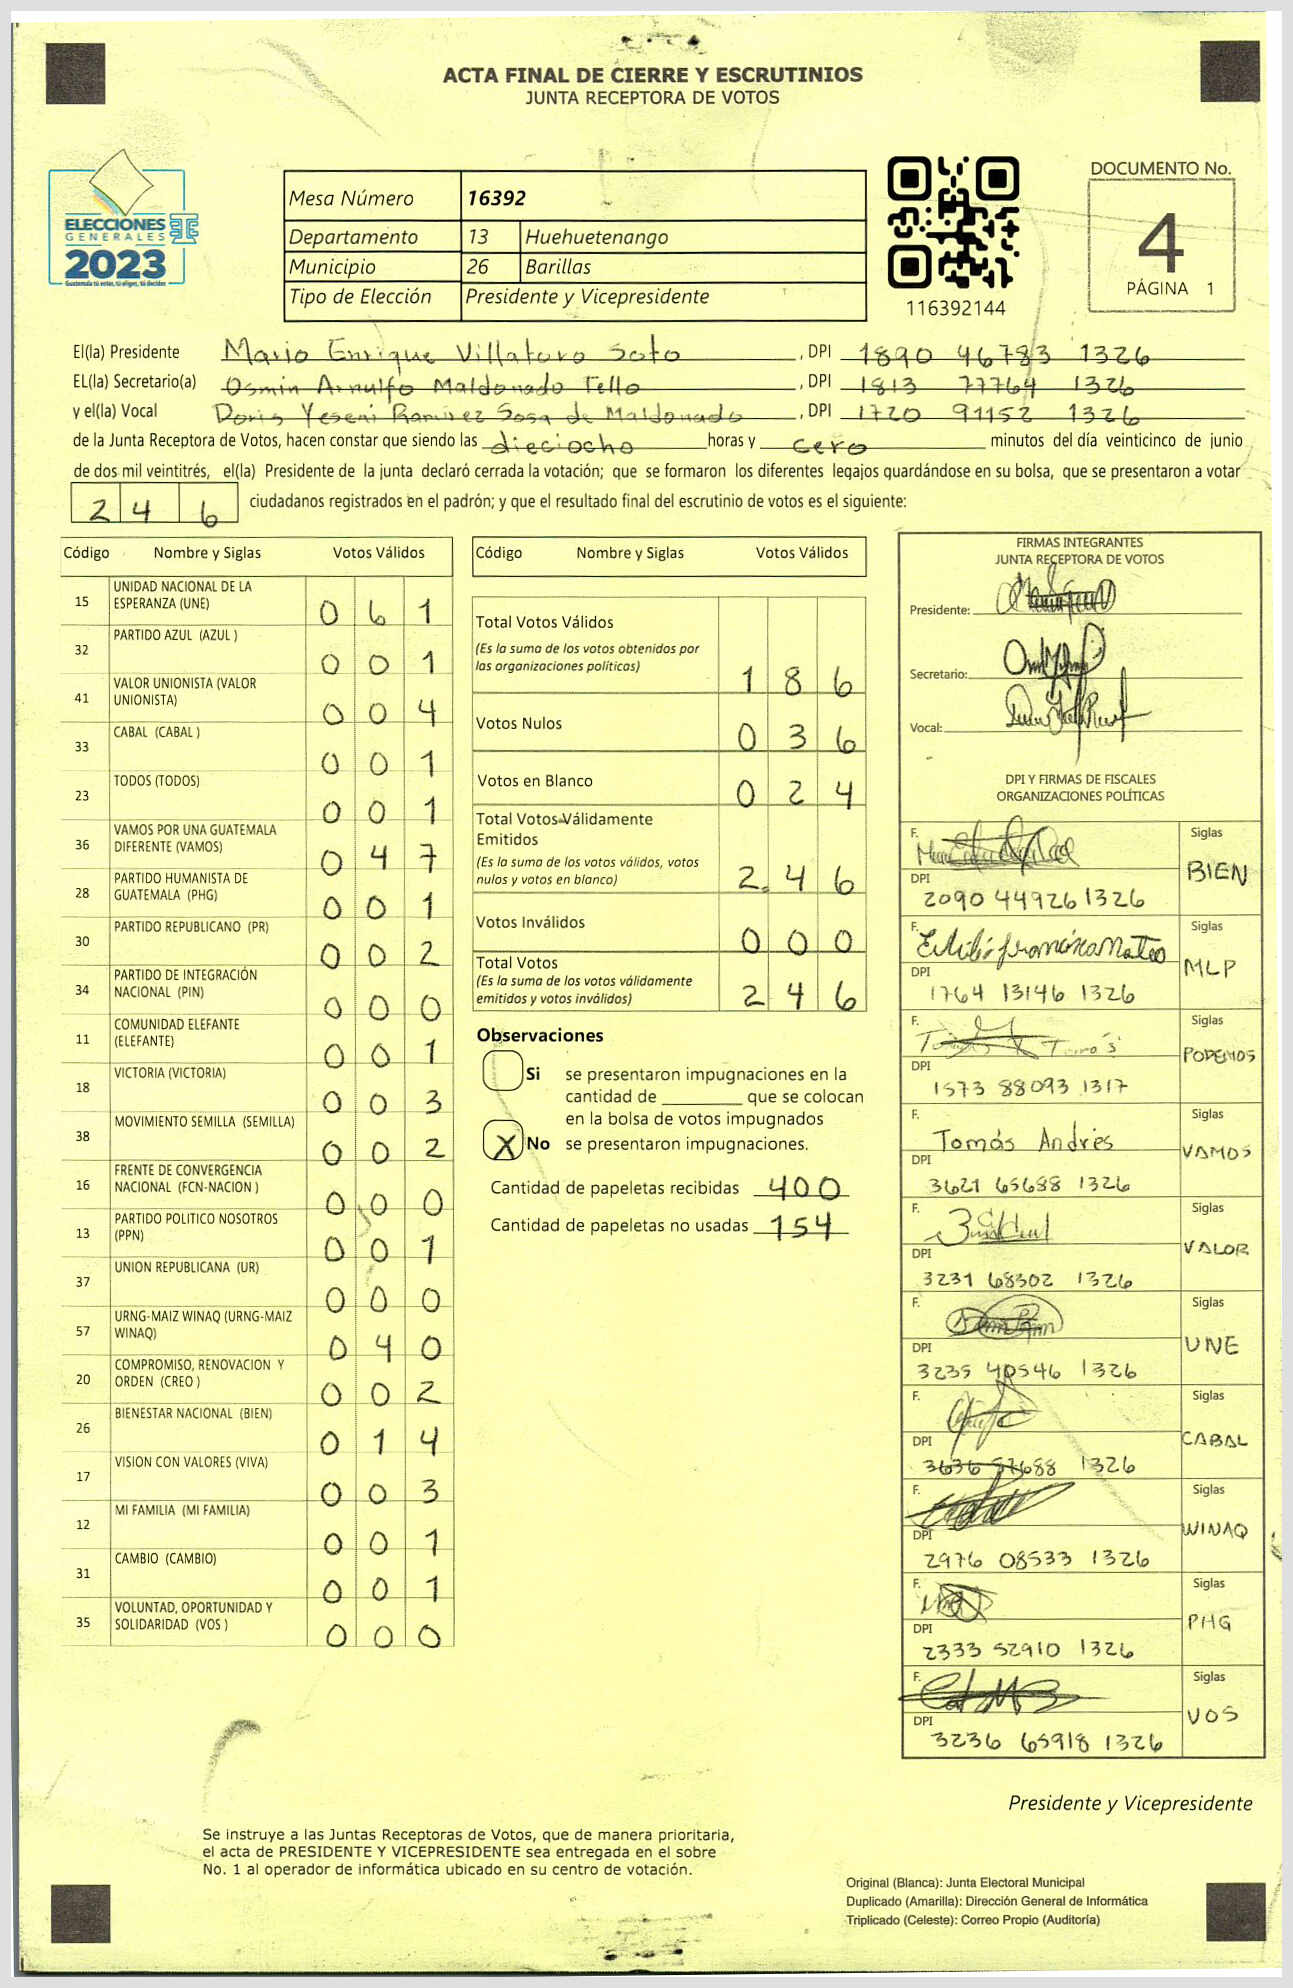 ACTA FINAL DE CIERRE Y ESCRUTINIOS
JUNTA RECEPTORA DE VOTOS
ELECCIONES
GENERALES
2023
Guatemala tú votas, tú eliges, tú decides
Mesa Número 16392
Departamento 13 Huehuetenango
Municipio 26 Barillas
Tipo de Elección Presidente y Vicepresidente
116392144
DOCUMENTO No.
4
PÁGINA 1
El(la) Presidente Mario Enrique Villatoro Soto , DPI 1890 46783 1326
EL(la) Secretario(a) Osmin Arnulfo Maldonado Tello , DPI 1813 77764 1326
y el(la) Vocal Doris Yeseni Ramirez Sosa de Maldonado , DPI 1720 91152 1326
de la Junta Receptora de Votos, hacen constar que siendo las dieciocho horas y cero minutos del día veinticinco de junio
de dos mil veintitrés, el(la) Presidente de la junta declaró cerrada la votación; que se formaron los diferentes legajos guardándose en su bolsa, que se presentaron a votar
246 ciudadanos registrados en el padrón; y que el resultado final del escrutinio de votos es el siguiente:
Código Nombre y Siglas Votos Válidos
15 UNIDAD NACIONAL DE LA ESPERANZA (UNE) 061
32 PARTIDO AZUL (AZUL ) 001
41 VALOR UNIONISTA (VALOR UNIONISTA) 004
33 CABAL (CABAL ) 001
23 TODOS (TODOS) 001
36 VAMOS POR UNA GUATEMALA DIFERENTE (VAMOS) 047
28 PARTIDO HUMANISTA DE GUATEMALA (PHG) 001
30 PARTIDO REPUBLICANO (PR) 002
34 PARTIDO DE INTEGRACIÓN NACIONAL (PIN) 000
11 COMUNIDAD ELEFANTE (ELEFANTE) 001
18 VICTORIA (VICTORIA) 003
38 MOVIMIENTO SEMILLA (SEMILLA) 002
16 FRENTE DE CONVERGENCIA NACIONAL (FCN-NACION ) 000
13 PARTIDO POLITICO NOSOTROS (PPN) 001
37 UNION REPUBLICANA (UR) 000
57 URNG-MAIZ WINAQ (URNG-MAIZ WINAQ) 040
20 COMPROMISO, RENOVACION Y ORDEN (CREO ) 002
26 BIENESTAR NACIONAL (BIEN) 014
17 VISION CON VALORES (VIVA) 003
12 MI FAMILIA (MI FAMILIA) 001
31 CAMBIO (CAMBIO) 001
35 VOLUNTAD, OPORTUNIDAD Y SOLIDARIDAD (VOS ) 000
Código Nombre y Siglas Votos Válidos
Total Votos Válidos
(Es la suma de los votos obtenidos por
las organizaciones políticas) 186
Votos Nulos 036
Votos en Blanco 024
Total Votos Válidamente
Emitidos
(Es la suma de los votos válidos, votos
nulos y votos en blanco) 246
Votos Inválidos 000
Total Votos
(Es la suma de los votos válidamente
emitidos y votos inválidos) 246
Observaciones
Si se presentaron impugnaciones en la
cantidad de ________ que se colocan
en la bolsa de votos impugnados
X No se presentaron impugnaciones.
Cantidad de papeletas recibidas 400
Cantidad de papeletas no usadas 154
FIRMAS INTEGRANTES
JUNTA RECEPTORA DE VOTOS
Presidente:
Secretario:
Vocal:
DPI Y FIRMAS DE FISCALES
ORGANIZACIONES POLÍTICAS
F. Siglas
BIEN
DPI
2090 44926 1326
F. Siglas
MLP
DPI
1764 13146 1326
F. Tomás Siglas
PODEMOS
DPI
1573 88093 1317
F. Tomás Andrés Siglas
VAMOS
DPI
3621 65688 1326
F. Siglas
VALOR
DPI
3231 68302 1326
F. Siglas
UNE
DPI
3235 40546 1326
F. Siglas
CABAL
DPI
3636 57688 1326
F. Siglas
WINAQ
DPI
2976 08533 1326
F. Siglas
PHG
DPI
2333 52910 1326
F. Siglas
VOS
DPI
3236 65918 1326
Presidente y Vicepresidente
Se instruye a las Juntas Receptoras de Votos, que de manera prioritaria,
el acta de PRESIDENTE Y VICEPRESIDENTE sea entregada en el sobre
No. 1 al operador de informática ubicado en su centro de votación.
Original (Blanca): Junta Electoral Municipal
Duplicado (Amarilla): Dirección General de Informática
Triplicado (Celeste): Correo Propio (Auditoría)